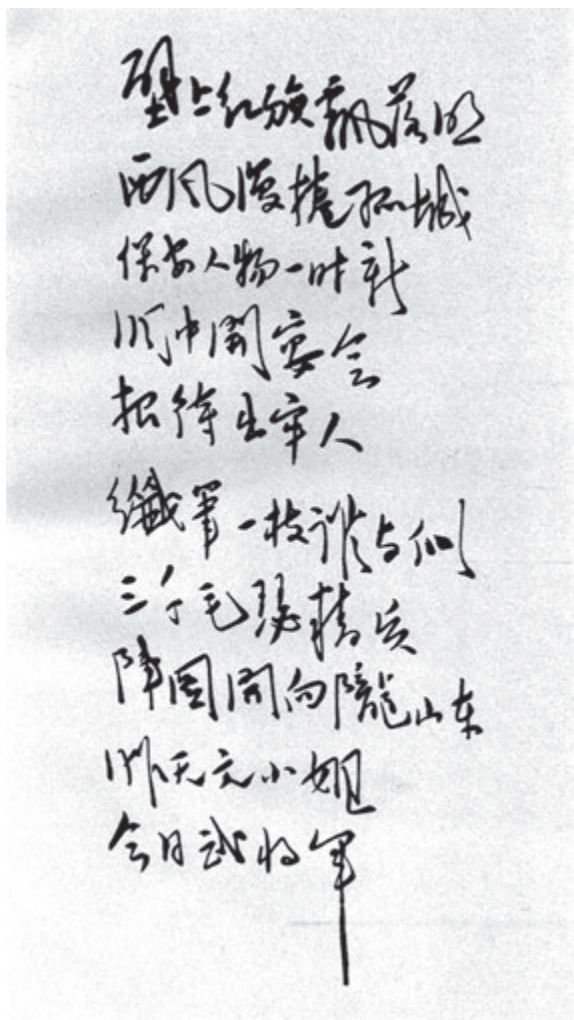 壁上红旗飘落照
西风漫捲孤城
保安人物一时新
洞中開宴会
招待出牢人
纖笔一枝谁与似
三千毛瑟精兵
阵圖開向隴山东
昨天文小姐
今日武将军